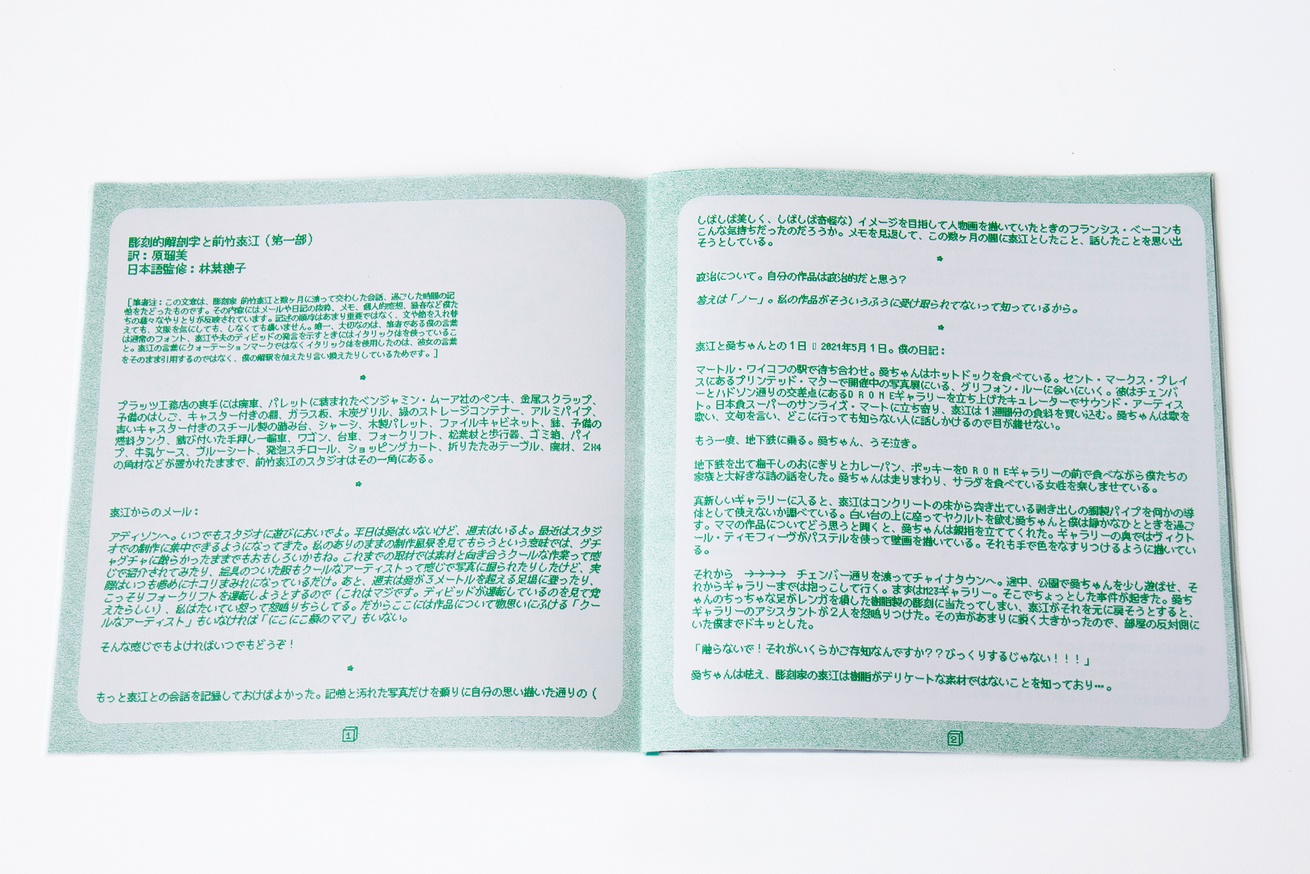 彫刻的解剖学と前竹泰江（第一部）
訳：原瑠美
日本語監修：林菜穂子
[筆者注：この文章は、彫刻家 前竹泰江と数ヶ月に渡って交わした会話、過ごした時間の記
憶をたどったものです。その内容にはメールや日記の抜粋、メモ、個人的感想、録音など僕た
ちの様々なやりとりが反映されています。記述の順序はあまり重要ではなく、文や節を入れ替
えても、文脈を気にしても、しなくても構いません。唯一、大切なのは、筆者である僕の言葉
は通常のフォント、泰江や夫のディビッドの発言を示すときにはイタリック体を使っているこ
と。泰江の言葉にクォーテーションマークではなくイタリック体を使用したのは、彼女の言葉
をそのまま引用するのではなく、僕の解釈を加えたり言い換えたりしているためです。]
*
プラッツ工務店の裏手には廃車、パレットに積まれたベンジャミン・ムーア社のペンキ、金属スクラップ、
予備のはしご、キャスター付きの棚、ガラス板、木炭グリル、緑のストレージコンテナー、アルミパイプ、
青いキャスター付きのスチール製の踏み台、シャーシ、木製パレット、ファイルキャビネット、鉢、予備の
燃料タンク、錆び付いた手押し一輪車、ワゴン、台車、フォークリフト、松葉杖と歩行器、ゴミ箱、パイ
プ、牛乳ケース、ブルーシート、発泡スチロール、ショッピングカート、折りたたみテーブル、廃材、2H4
の角材などが置かれたままで、前竹泰江のスタジオはその一角にある。
*
泰江からのメール：
アディソンへ。いつでもスタジオに遊びにおいでよ。平日は愛はいないけど、週末はいるよ。最近はスタジ
オでの制作に集中できるようになってきた。私のありのままの制作風景を見てもらうという意味では、グチ
ャグチャに散らかったままでもおもしろいかもね。これまでの取材では素材と向き合うクールな作業って感
じで紹介されてみたり、絵具のついた服もクールなアーティストって感じで写真に撮られたりしたけど、実
際はいつも惨めにホコリまみれになっているだけ。あと、週末は愛が３メートルを超える足場に登ったり、
こっそりフォークリフトを運転しようとするので（これはマジです。ディビッドが運転しているのを見て覚
えたらしい）、私はたいてい怒って怒鳴りちらしてる。だからここには作品について物思いにふける「クー
ルなアーティスト」もいなければ「にこにこ顔のママ」もいない。
そんな感じでもよければいつでもどうぞ！
*
もっと泰江との会話を記録しておけばよかった。記憶と汚れた写真だけを頼りに自分の思い描いた通りの（
1
しばしば美しく、しばしば奇怪な）イメージを目指して人物画を描いていたときのフランシス・ベーコンも
こんな気持ちだったのだろうか。メモを見返して、この数ヶ月の間に泰江としたこと、話したことを思い出
そうとしている。
*
政治について。自分の作品は政治的だと思う？
答えは「ノー」。私の作品がそういうふうに受け取られてないって知っているから。
*
泰江と愛ちゃんとの１日 ▯ 2021年5月1日。僕の日記：
マートル・ワイコフの駅で待ち合わせ。愛ちゃんはホットドックを食べている。セント・マークス・プレイ
スにあるプリンテッド・マターで開催中の写真展にいる、グリフォン・ルーに会いにいく。彼はチェンバ
ーとハドソン通りの交差点にあるＤＲＯＭＥギャラリーを立ち上げたキュレーターでサウンド・アーティス
ト。日本食スーパーのサンライズ・マートに立ち寄り、泰江は１週間分の食料を買い込む。愛ちゃんは歌を
歌い、文句を言い、どこに行っても知らない人に話しかけるので目が離せない。
もう一度、地下鉄に乗る。愛ちゃん、うそ泣き。
地下鉄を出て梅干しのおにぎりとカレーパン、ポッキーをＤＲＯＭＥギャラリーの前で食べながら僕たちの
家族と大好きな詩の話をした。愛ちゃんは走りまわり、サラダを食べている女性を楽しませている。
真新しいギャラリーに入ると、泰江はコンクリートの床から突き出ている剥き出しの鋼製パイプを何かの導
体として使えないか調べている。白い台の上に座ってヤクルトを飲む愛ちゃんと僕は静かなひとときを過ご
す。ママの作品についてどう思うと聞くと、愛ちゃんは親指を立ててくれた。ギャラリーの奥ではヴィクト
ール・ティモフィーヴがパステルを使って壁画を描いている。それも手で色をなすりつけるように描いてい
る。
それから　→→→→　チェンバー通りを渡ってチャイナタウンへ。途中、公園で愛ちゃんを少し遊ばせ、そ
れからギャラリーまでは抱っこして行く。まずはM23ギャラリー。そこでちょっとした事件が起きた。愛ち
ゃんのちっちゃな足がレンガを模した樹脂製の彫刻に当たってしまい、泰江がそれを元に戻そうとすると、
ギャラリーのアシスタントが２人を怒鳴りつけた。その声があまりに鋭く大きかったので、部屋の反対側に
いた僕までドキッとした。
「触らないで！それがいくらかご存知なんですか？？びっくりするじゃない！！！」
愛ちゃんは怯え、彫刻家の泰江は樹脂がデリケートな素材ではないことを知っており…。
2